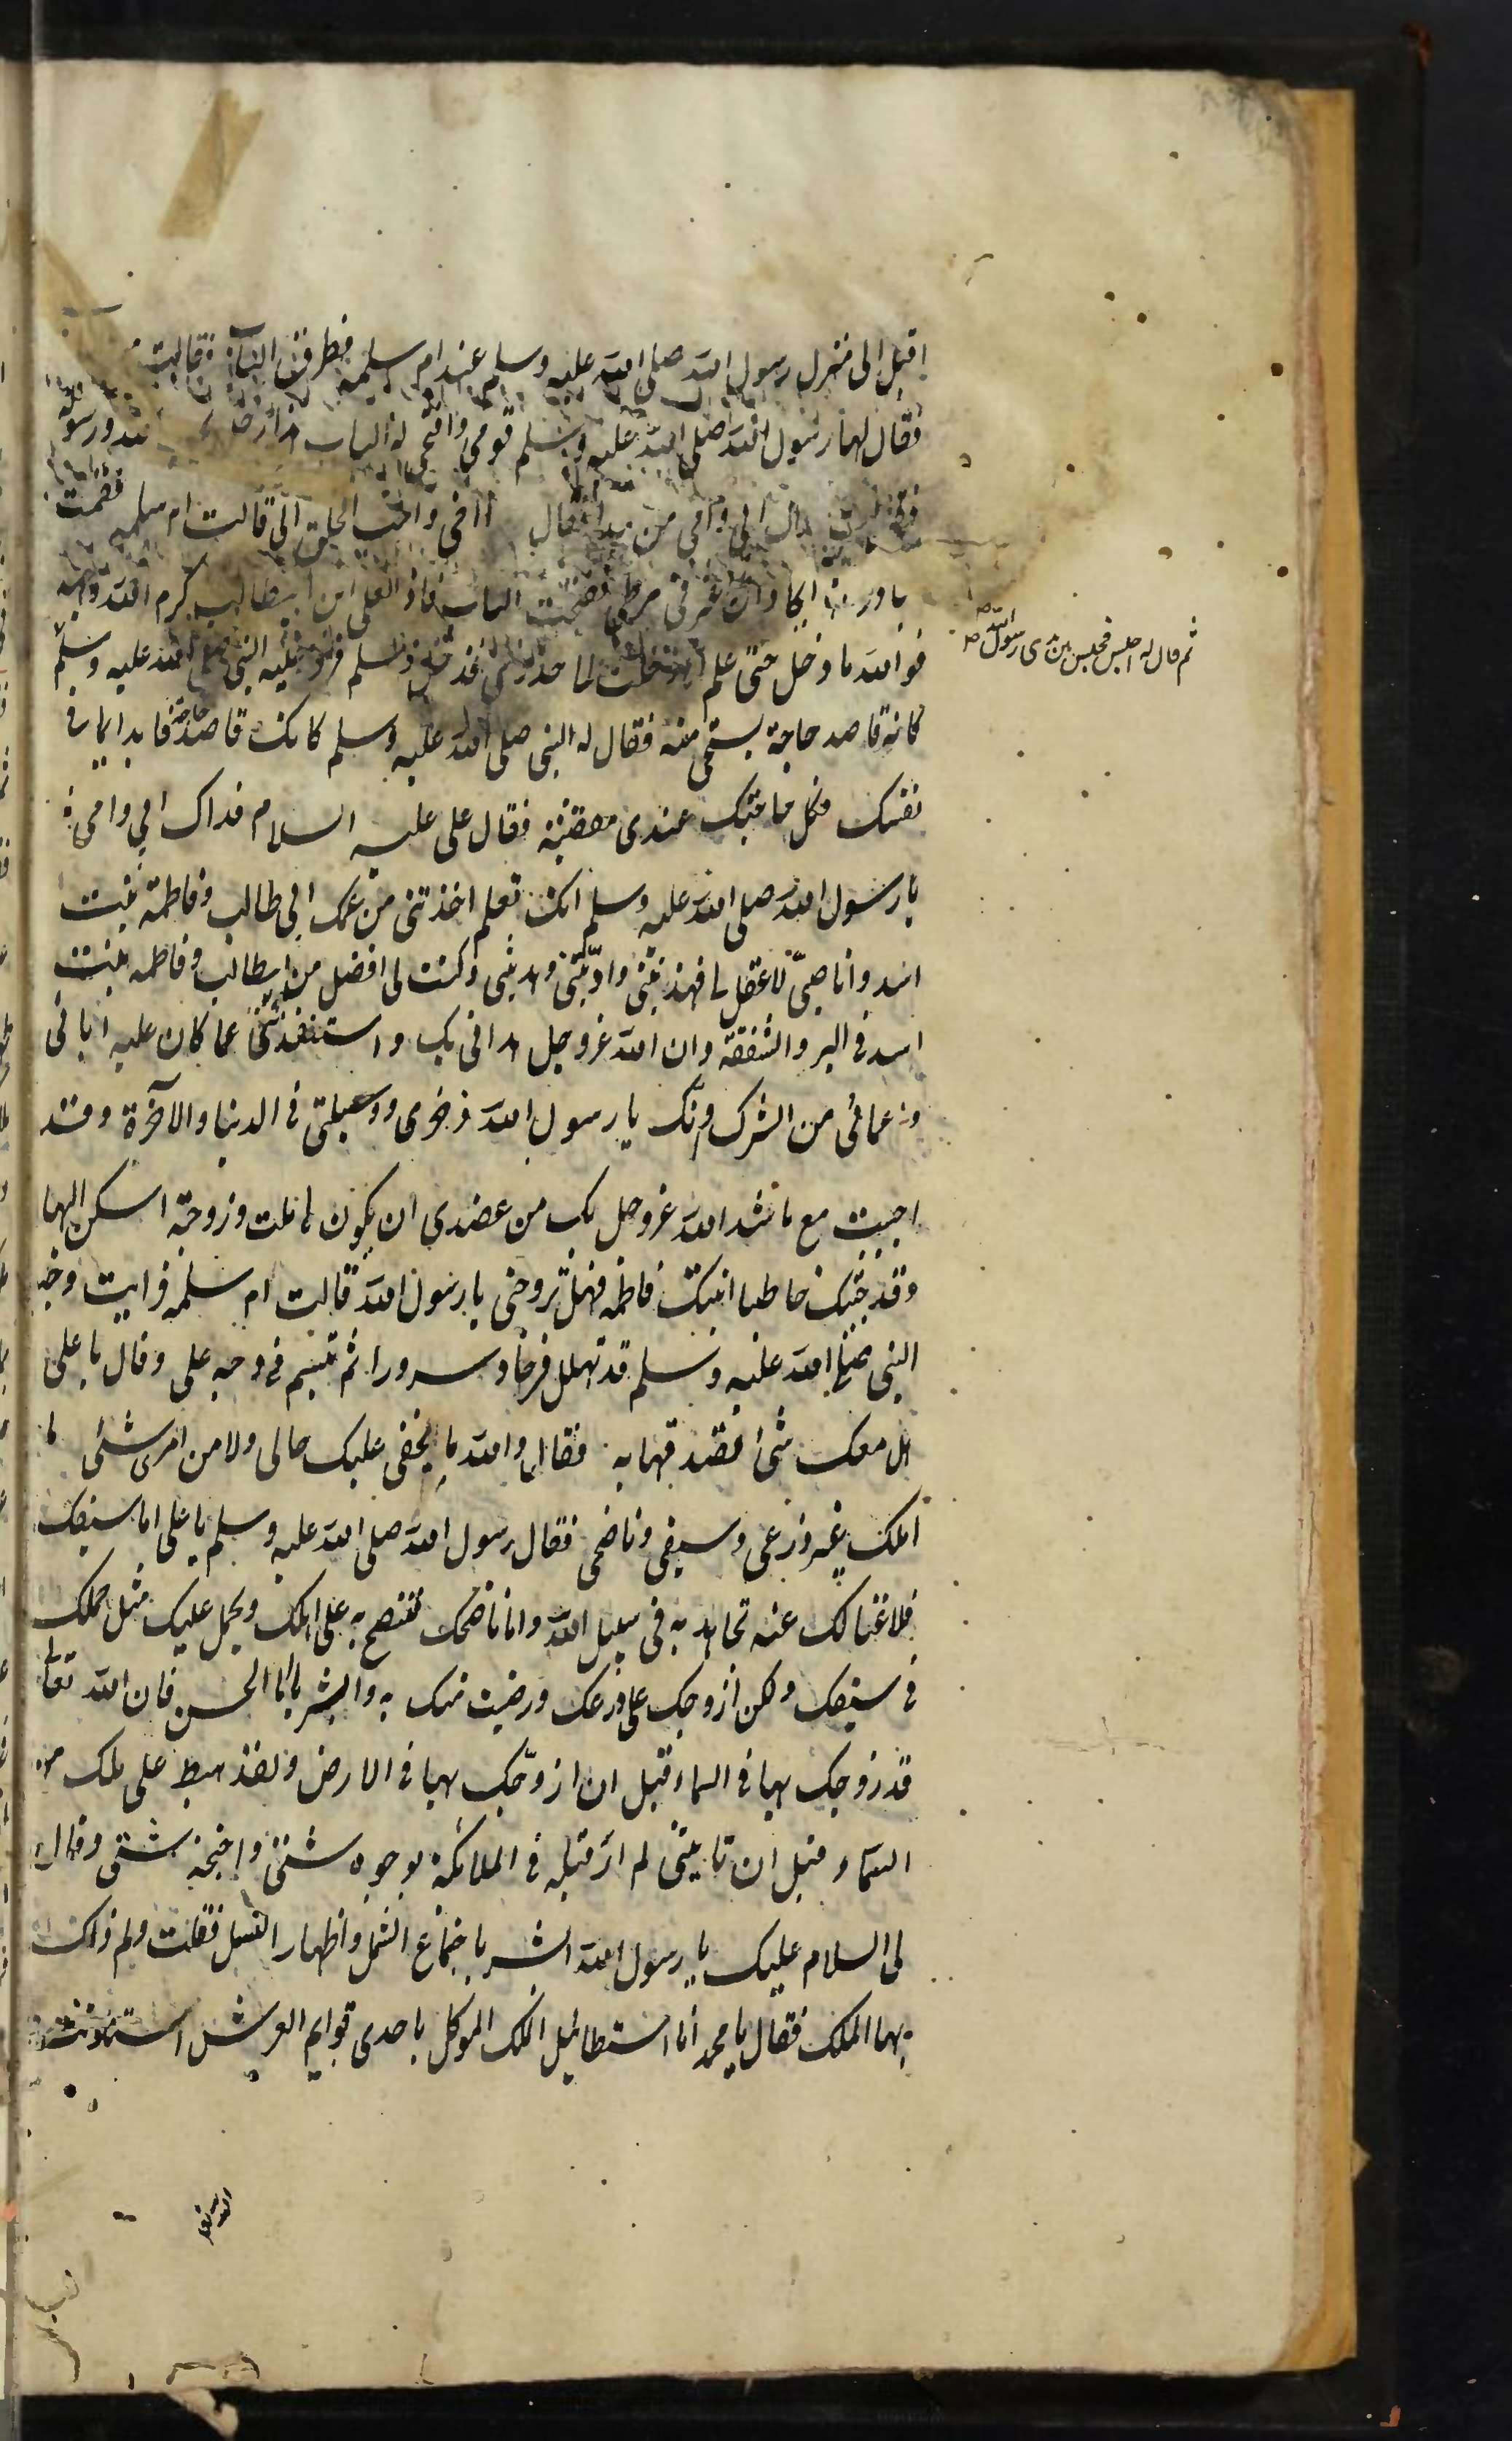 اقبل الى منزل رسول الله صلى الله عليه وسلم عند ام سلمه فطرق الباب فقالت من
فقال لها رسول الله صلى الله عليه وسلم قومى وافتحى له الباب هذا رجل الله ورسوله
ابى وامى من هذا فقال اخى واحب الخلق الى قالت ام سلمه فقمت
مبادرة اكاد ان اعثر فى مرطى ففتحت الباب فاذا بعلى ابن ابيطالب كرم الله وجهه
فوالله ما دخل حتى علم انى دخلت الى خدرى فدخل وسلم فرد عليه النبى صلى الله عليه وسلم
ثم قال له اجلس فجلس بين يدى رسول الله ص
كانه قاصد حاجة يستحى منه فقال له النبى صلى الله عليه وسلم كانك قاصد حاجة فابد لى ما فى
نفسك فكل حاجتك عندى مقضية فقال على عليه السلام فداك ابى وامى
يا رسول الله صلى الله عليه وسلم انك تعلم اخذتنى من عمك ابى طالب وفاطمة بنت
اسد وانا صبىّ لا عقل لى فهذبتنى وادّبتنى وهديتنى وكنت لى افضل من ابيطالب وفاطمه بنت
اسد فى البر والشفقة وان الله عزوجل هدانى بك واستنقذنى عما كان عليه ابائى
واعمائى من الشرك وانّك يا رسول الله ذخرى ووسيلتى فى الدنيا والاخرة وقد
احببت مع ما شد الله عزوجل بك من عضدى ان يكون لى بيت وزوجة اسكن اليها
وقد جئتك خاطبا ابنتك فاطمه فهل تزوجنى يا رسول الله قالت ام سلمه فرايت وجه
النبى صلى الله عليه وسلم قد تهلل فرحا وسرورا ثم تبسم فى وجه على وقال يا على
هل معك شئ فتصدقها به فقال والله ما يخفى عليك حالى ولا من امرى شئ ما
املك غير درعى وسيفى وناضحى فقال رسول الله صلى الله عليه وسلم يا على اما سيفك
فلا غنا لك عنه تجاهد به فى سبيل الله واما ناضحك فتنضح به على اهلك ويحمل عليك مثل حملك
فى سيفك ولكن ازوجك على درعك ورضيت منك به وابشر يا ابا الحسن فان الله تعالى
قد زوجك بها فى السماء قبل ان ازوّجك بها فى الارض ولقد هبط على ملك من
السماء قبل ان تاتينى لم ار قبله فى الملائكة بوجوه شتى واجنحة شتى وقال
لى السلام عليك يا رسول الله ابشر باجتماع الشمل واطهار النسل فقلت ولم ذاك
ايها الملك فقال يا محمد انا استطائيل الملك الموكل باحدى قوايم العرش استاذنت